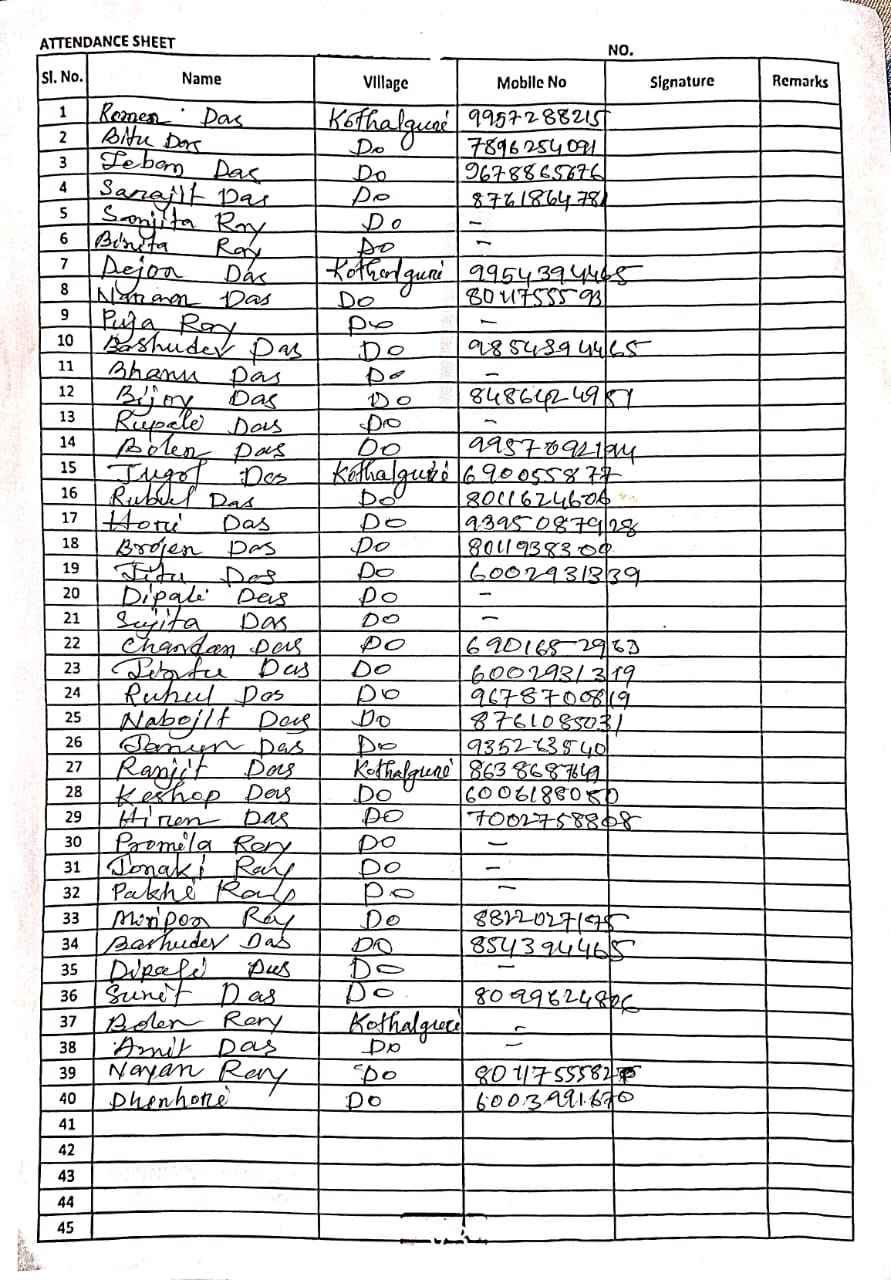 ATTENDANCE SHEET NO.
Sl. No. Name Village Mobile No Signature Remarks
1 Romen Das Kothalguri 9957288215
2 Bitu Das Do 7896254091
3 Jebon Das Do 9678865676
4 Sarajit Das Do 8761864781
5 Sonjita Roy Do –
6 Binita Roy Do –
7 Dejon Das Kothalguri 9954394465
8 Narayan Das Do 8011755593
9 Puja Roy Do –
10 Bashudev Das Do 9854394465
11 Bhanu Das Do –
12 Bijoy Das Do 8486424951
13 Rupali Das Do –
14 Bolen Das Do 9957692194
15 Jugol Das Kothalguri 690055877
16 Rubul Das Do 8011624606
17 Hori Das Do 9395087928
18 Brojen Das Do 8011938300
19 Jitu Das Do 6002931339
20 Dipali Das Do –
21 Sujita Das Do –
22 Chandan Das Do 6901652963
23 Das Do 6002931319
24 Ruhul Das Do 9678700819
25 Nabojit Das Do 8761085031
26 Das Do 935263540
27 Ranjit Das Kothalguri 8638687649
28 Keshop Das Do 6006188050
29 Hiren Das Do 7002758808
30 Promila Roy Do –
31 Jonaki Roy Do –
32 Pakhi Roy Do –
33 Miripon Roy Do 8822027195
34 Bashudev Das Do 854394465
35 Dipali Das Do –
36 Sunit Das Do 8099624806
37 Bolen Roy Kothalguri –
38 Amit Das Do –
39 Nayan Roy Do
40 Dhenhori Do 6003991670
41
42
43
44
45